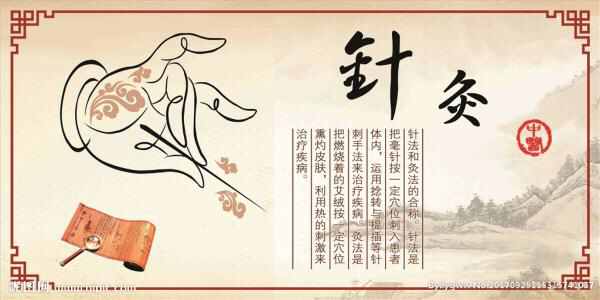 針灸
中醫
针法和灸法的合称。针法是
把毫针按一定穴位刺入患者
体内，运用捻转与提插等针
刺手法来治疗疾病。灸法是
把燃烧着的艾绒按一定穴位
熏灼皮肤，利用热的刺激来
治疗疾病。
昵图网 www.nipic.com